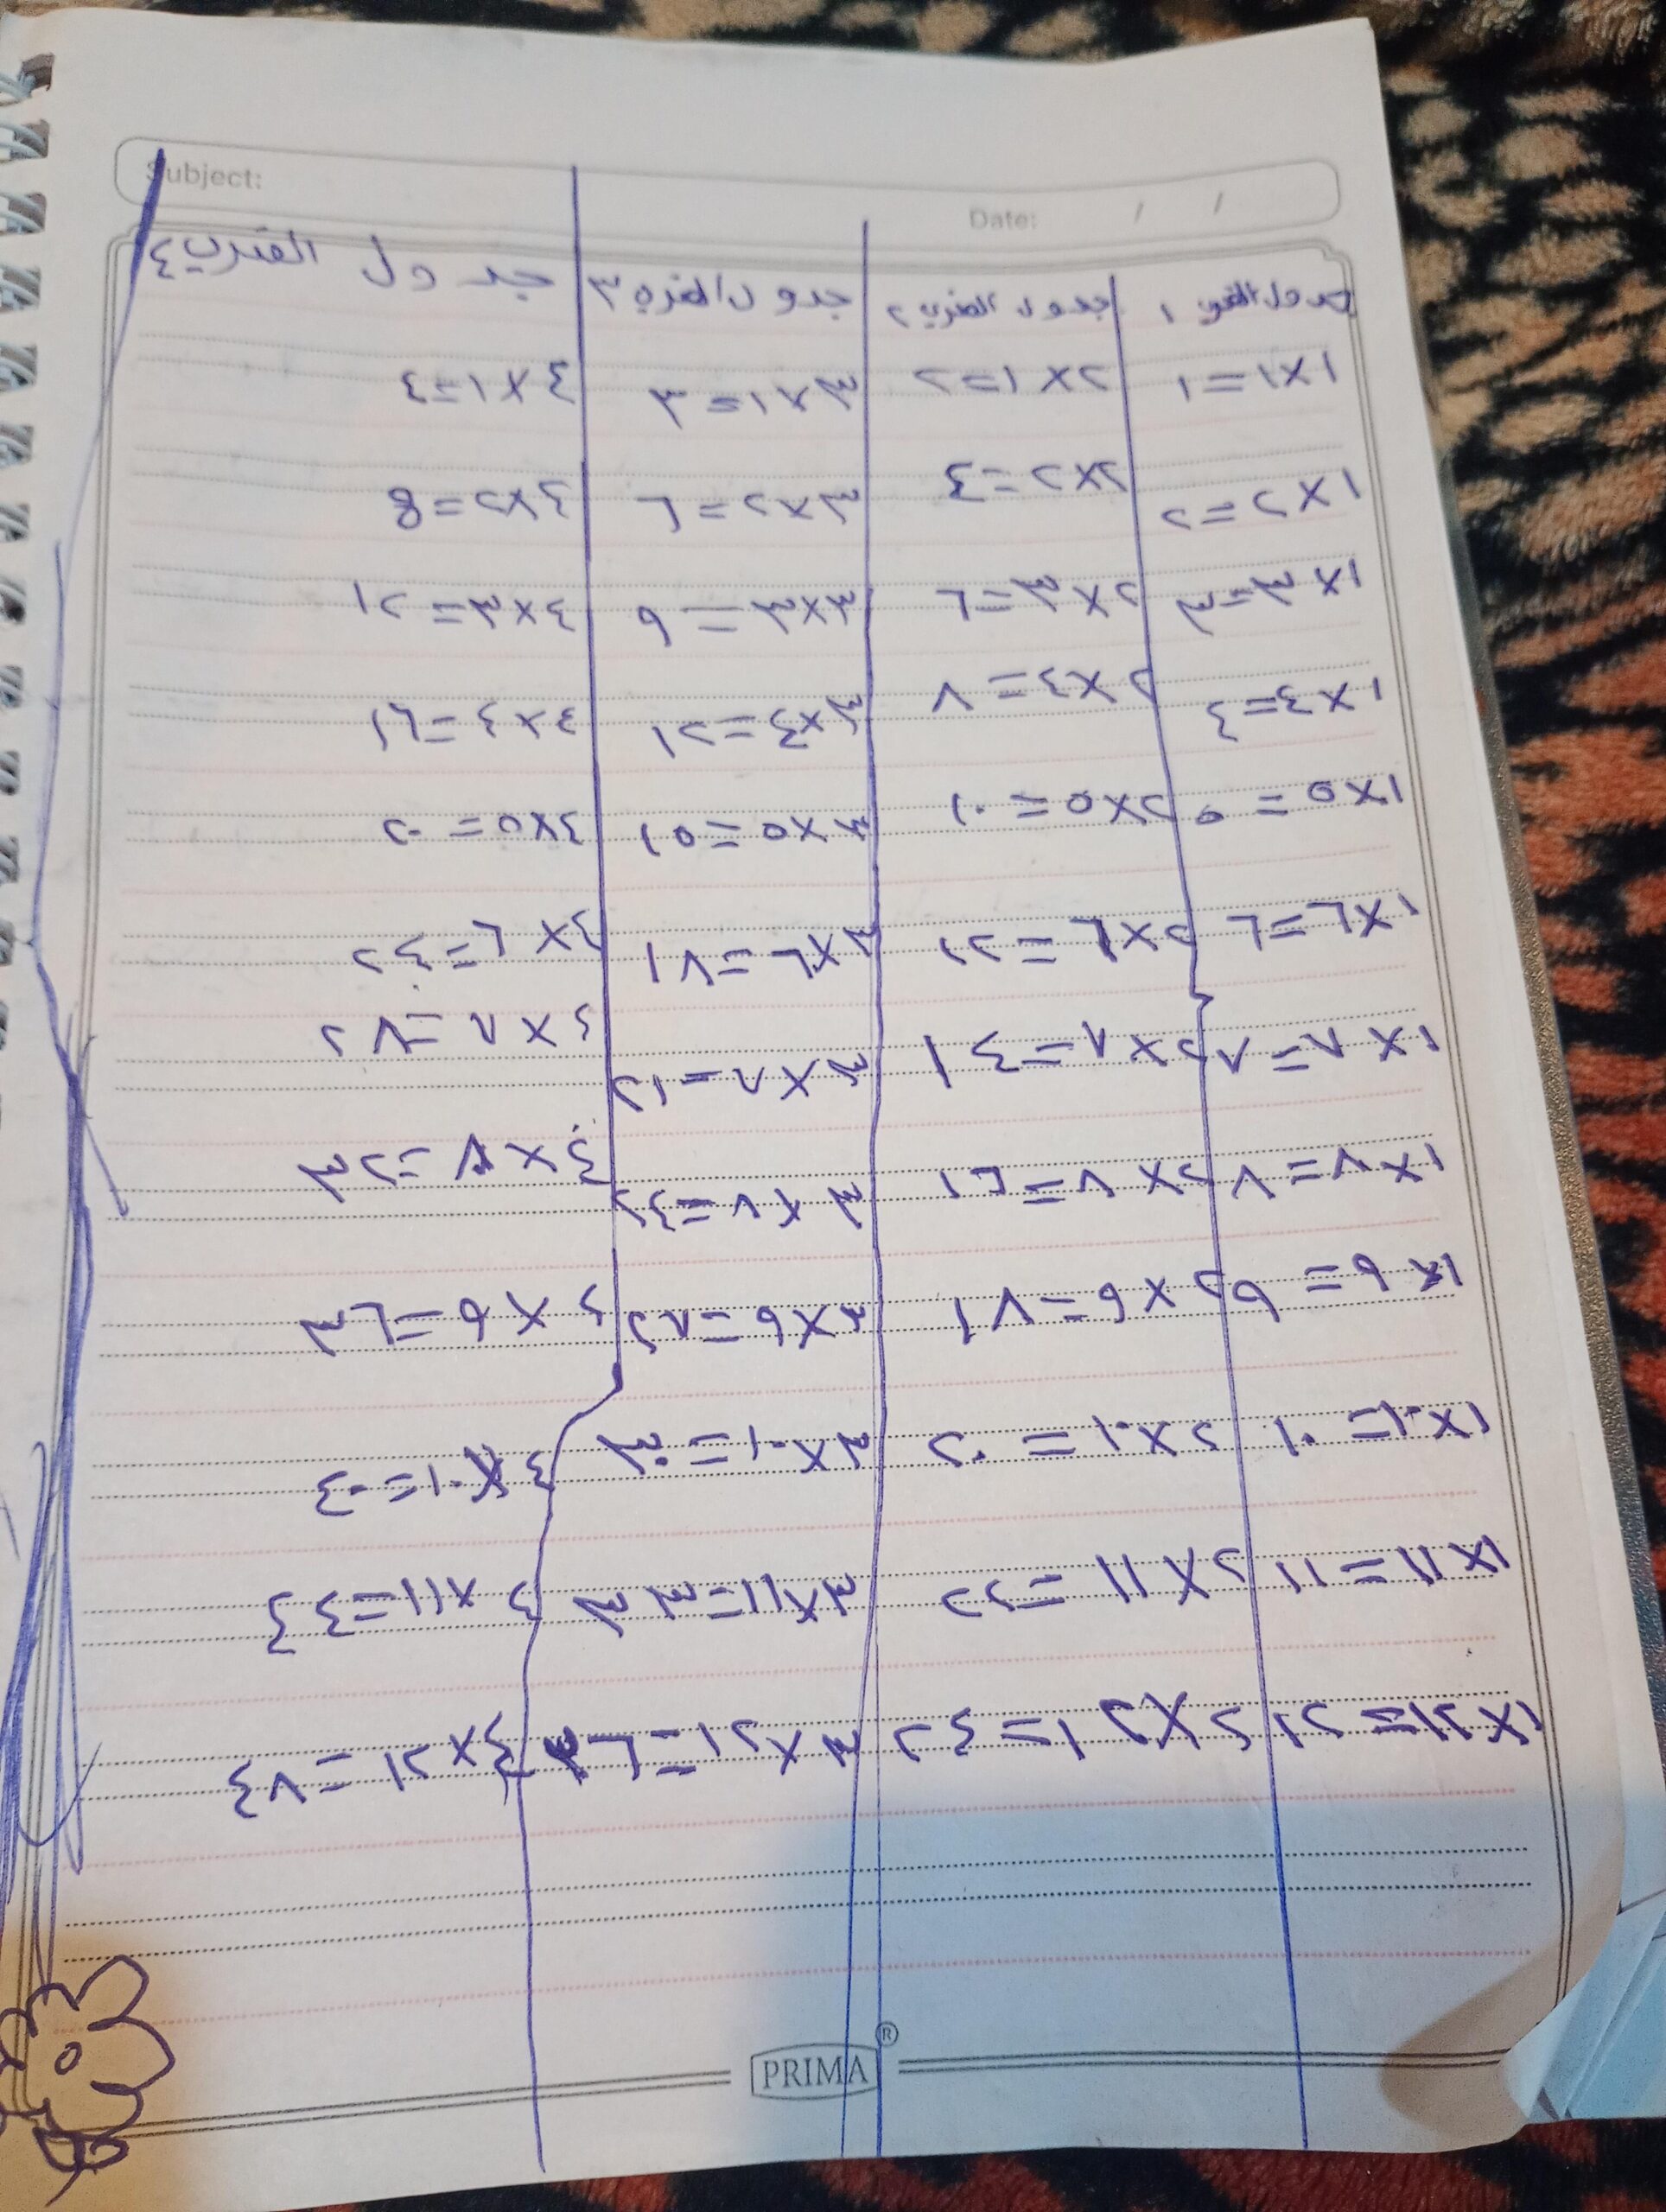 Subject:
Date: / /
جدول الضرب ١ جدول الضرب ٢ جدول الضرب ٣ جدول الضرب ٤
١×١=١ ٢×١=٢ ٣×١=٣ ٤×١=٤
١×٢=٢ ٢×٢=٤ ٣×٢=٦ ٤×٢=8
١×٣=٣ ٢×٣=٦ ٣×٣=٩ ٤×٣=١٢
١×٤=٤ ٢×٤=٨ ٣×٤=١٢ ٤×٤=١٦
١×٥=٥ ٢×٥=١٠ ٣×٥=١٥ ٤×٥=٢٠
١×٦=٦ ٢×٦=١٢ ٣×٦=١٨ ٤×٦=٢٤
١×٧=٧ ٢×٧=١٤ ٣×٧=٢١ ٤×٧=٢٨
١×٨=٨ ٢×٨=١٦ ٣×٨=٢٤ ٤×٨=٣٢
١×٩=٩ ٢×٩=١٨ ٣×٩=٢٧ ٤×٩=٣٦
١×١٠=١٠ ٢×١٠=٢٠ ٣×١٠=٣٠ ٤×١٠=٤٠
١×١١=١١ ٢×١١=٢٢ ٣×١١=٣٣ ٤×١١=٤٤
١×١٢=١٢ ٢×١٢=٢٤ ٣×١٢=٣٦ ٤×١٢=٤٨
PRIMA®